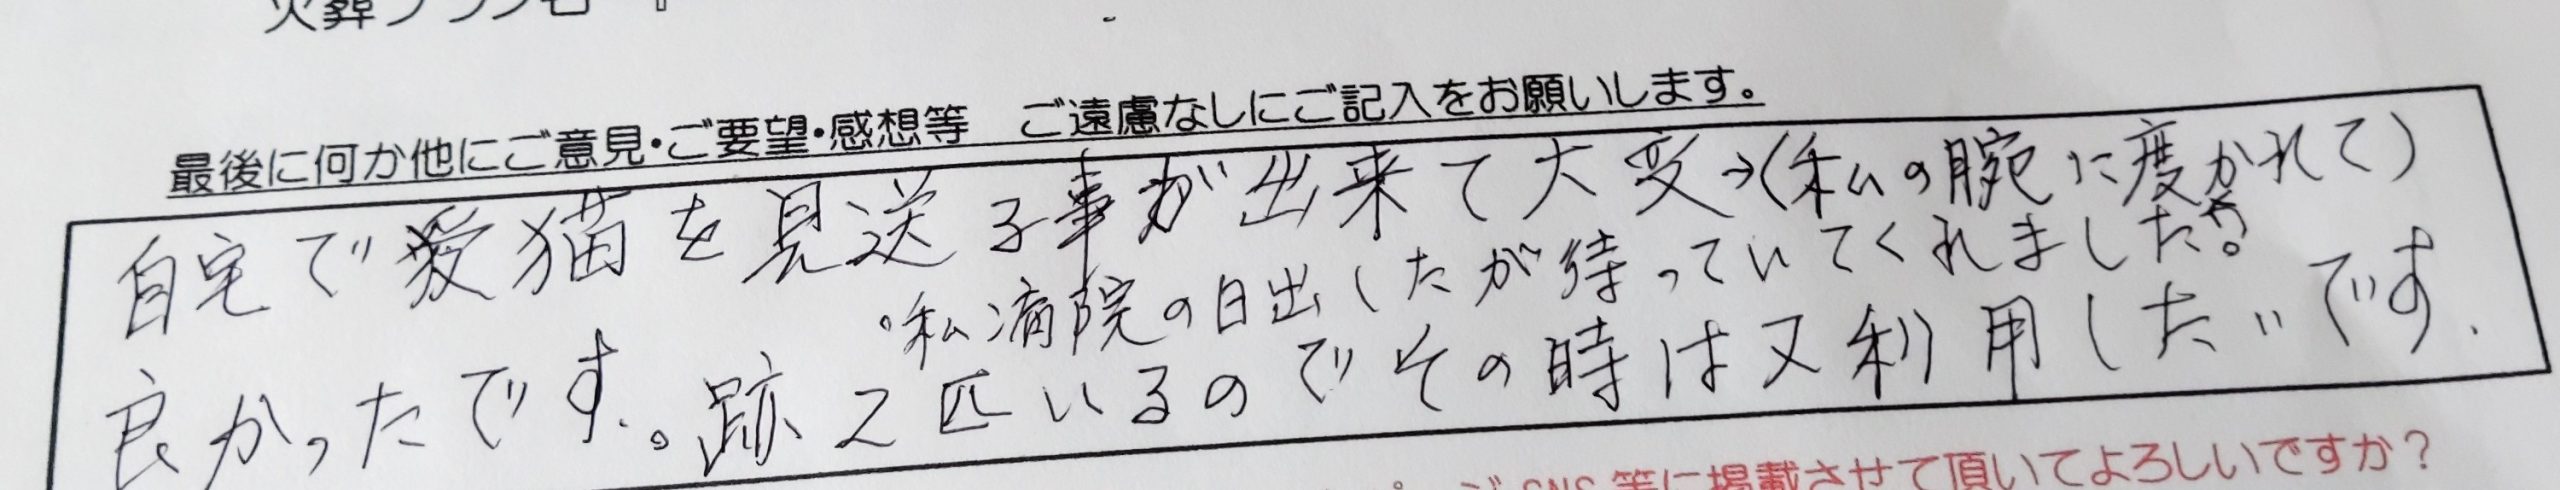 最後に何か他にご意見・ご要望・感想等 ご遠慮なしにご記入をお願いします。
自宅で愛猫を見送る事が出来て大変→(私の腕に度かれて)
・私病院の日出したが待っていてくれました。
良かったです。跡2匹いるのでその時は又利用したいです.
SNS等に掲載させて頂いてよろしいですか？